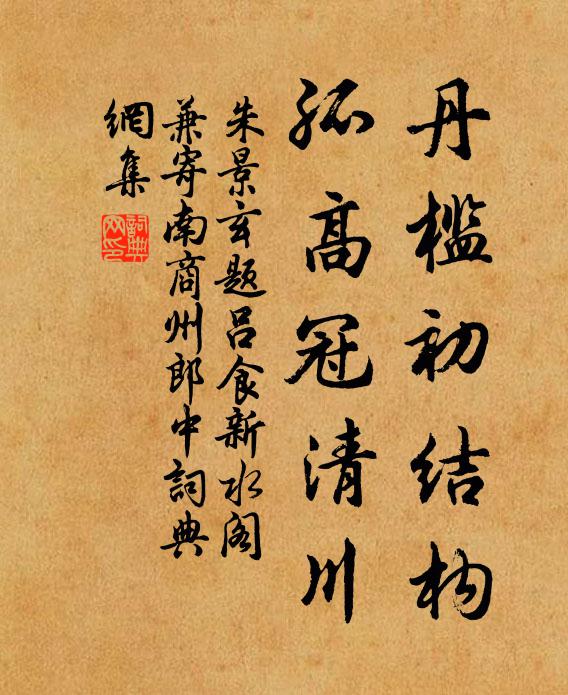 丹檻初结构
孤高冠清川
朱景玄题吕食新水阁
兼寄南商州郎中詞典
網集
詞典网印